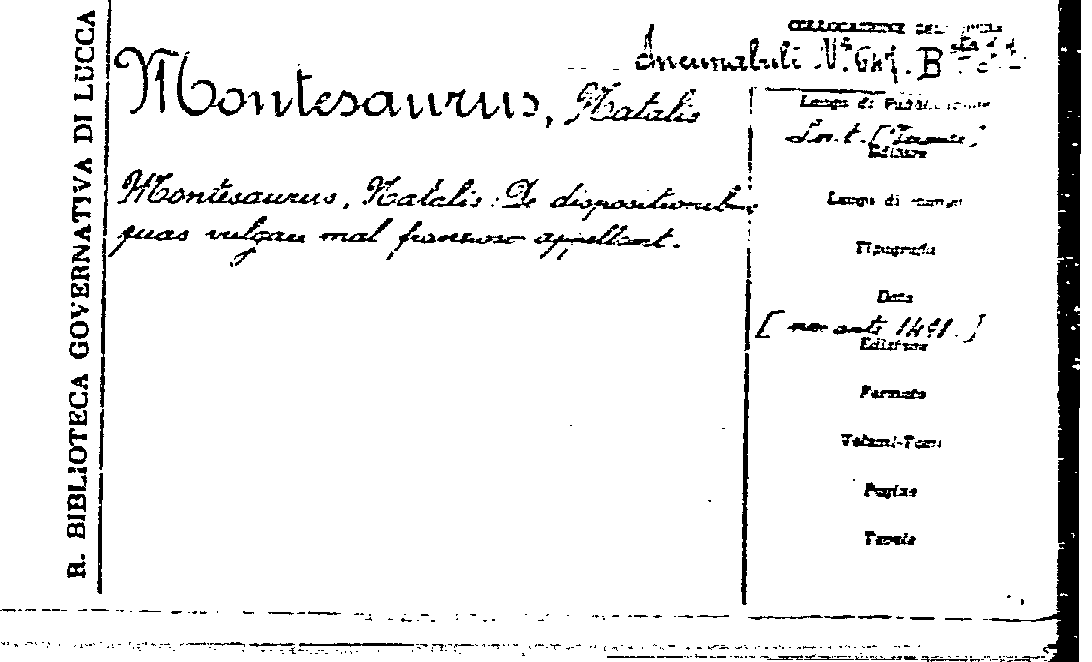 R. BIBLIOTECA GOVERNATIVA DI LUCCA
COLLOCAZIONE
Incunabuli N.°
Montesaurus, Natalis
Montesaurus, Natalis: De dispositionib.
quas vulgari mal franzoso appellant.
Luogo di Pubblicazione
S. n. t.
Editore
Luogo di stampa
Tipografia
Data
[non ante 1491.]
Edizione
Formato
Volumi-Tomi
Pagine
Tavole